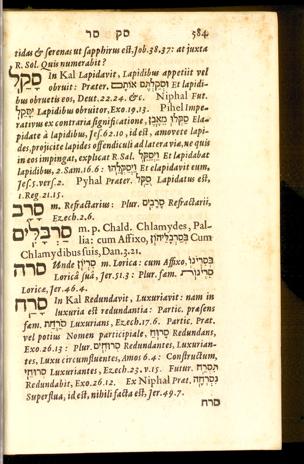 סק סר 584
tidas & serenas ut sapphirus est, Job. 38.37: at juxta
R. Sol. Quis numerabit?
סָקַל In Kal Lapidavit, Lapidibus appetiit vel
obruit: Præter. וּסְקַלְתֶּם אוֹתָם Et lapidi-
bus obruetis eos, Deut. 22.24. &c. Niphal Fut.
יִסָּקֵל Lapidibus obruitor, Exo. 19.13. Pihel Impe-
rativus ex contraria significatione, סַקְּלוּ מֵאֶבֶן Ela-
pidate à lapidibus, Jes. 62.10, id est, amovete lapi-
des, projicite lapides offendiculi ad latera viæ, ne quis
in eos impingat, explicat R. Sal. וַיְסַקֵּל Et lapidabat
lapidibus, 2. Sam. 16.6: וַיְסַקְּלֵהוּ Et elapidavit eum,
Jes. 5. vers. 2. Pyhal Præter. סֻקַּל Lapidatus est,
1. Reg. 21.15.
סָרָב m. Refractarius: Plur. סָרָבִים Refractarii,
Ezech. 2.6.
סַרְבָּלִים m. p. Chald. Chlamydes, Pal-
lia: cum Affixo, בְּסַרְבָּלֵיהוֹן Cum
Chlamydibus suis, Dan. 3.21.
סרה Unde סִרְיוֹן m. Lorica: cum Affixo, בְּסִרְיֹנוֹ
Lorica suâ, Jer. 51.3: Plur. fœm. סִרְיֹנוֹת
Loricæ, Jer. 46.4.
סָרַח In Kal Redundavit, Luxuriavit: nam in
luxuria est redundantia: Partic. præsens
fœm. סֹרַחַת Luxurians, Ezech. 17.6. Partic. Præt.
vel potius Nomen participiale, סָרוּחַ Redundans,
Exo. 26.13: Plur. סְרוּחִים Redundantes, Luxurian-
tes, Luxu circumfluentes, Amos 6.4: Constructum,
סְרוּחֵי Luxuriantes, Ezech. 23. v. 15. Futur. תִּסְרַח
Redundabit, Exo. 26.12. Ex Niphal Præt. נִסְרְחָה
Superflua, id est, nihili facta est, Jer. 49.7.
סרח